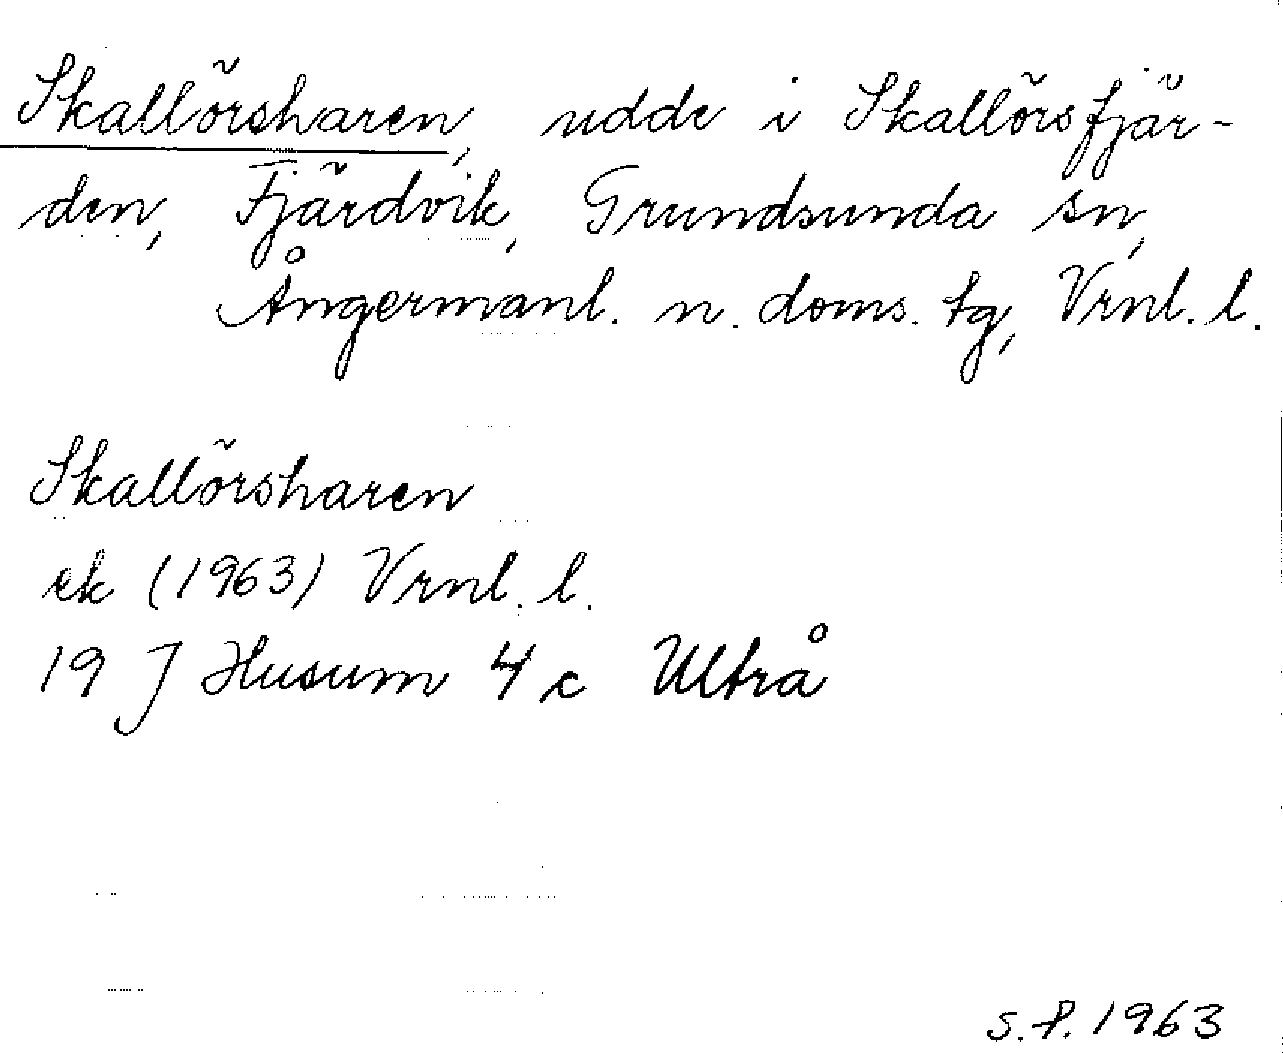 Skallörsharen, udde i Skallörsfjär-
den, Fjärdvik, Grundsunda sn,
Ångermanl. n. doms. tg, Vrnl. l.
Skallörsharen
ek (1963) Vrnl. l.
19 J Husum 4 c Ultrå
S.P. 1963